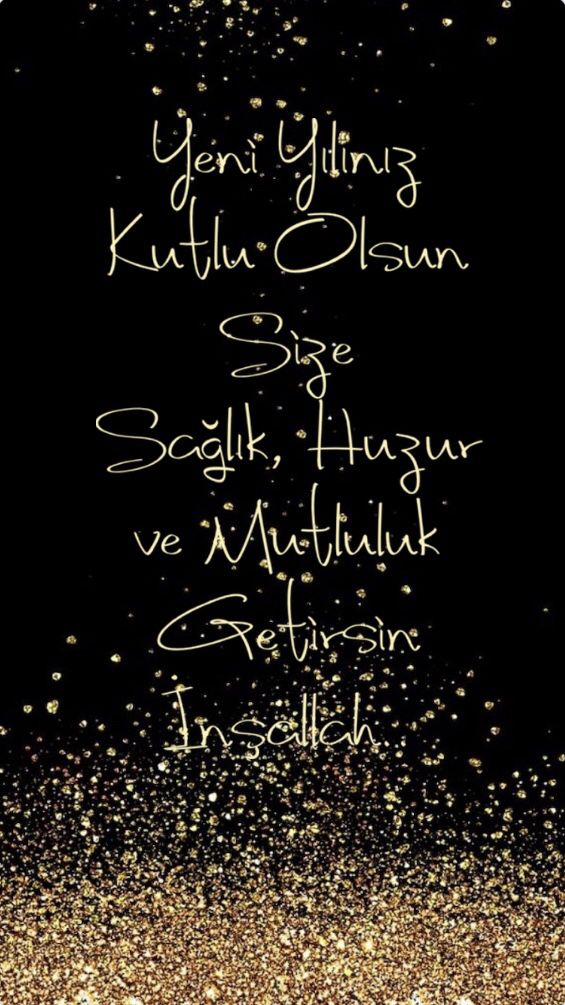 Yeni Yılınız
Kutlu Olsun
Size
Sağlık, Huzur
ve Mutluluk
Getirsin
Inşallah